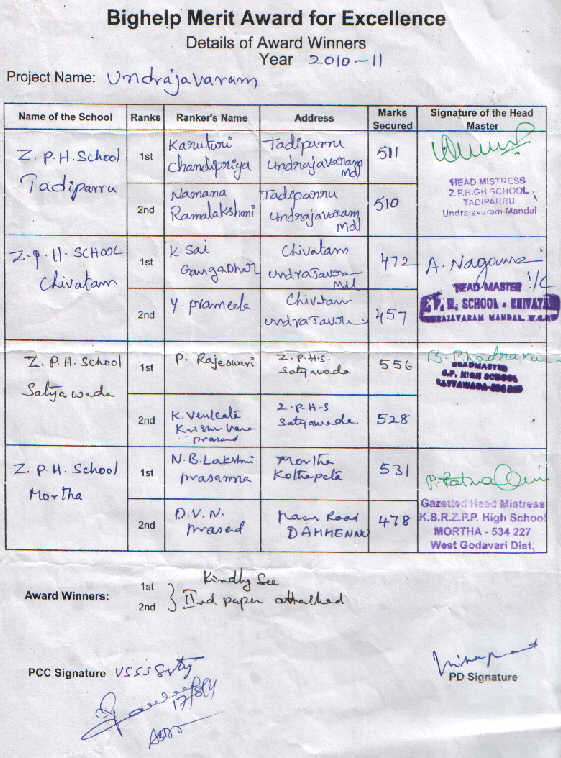 Bighelp Merit Award for Excellence
Details of Award Winners
Year 2010-11
Project Name: Undrajavaram
Name of the School Ranks Ranker's Name Address Marks Secured Signature of the Head Master
Z.P.H. School Tadiparru
1st Karuturi Chandipriya Tadiparru Undrajavaram Mdl 511
HEAD MISTRESS
Z.P.HIGH SCHOOL
TADIPARRU
Undrajavaram Mandal
2nd Namana Ramalakshmi Tadiparru Undrajavaram Mdl 510
Z.P.H. SCHOOL Chivatam
1st K Sai Gangadhar Chivatam 472
HEAD MASTER I/C
SCHOOL - CHIVATAM
2nd Y Prameela Chivatam 457
Z.P.H. School Satyawada
1st P. Rajeswari Z.P.H.S. Satyawada 556
HEADMASTER
Z.P. HIGH SCHOOL
2nd K. Venkata Prasad Z.P.H.S Satyawada 528
Z.P.H. School Mortha
1st N.B. Lakshmi Prasanna Mortha Kothapeta 531
Gazetted Head Mistress
K.S.R.Z.P.P. High School
MORTHA - 534 227
West Godavari Dist.
2nd D.V.N. Prasad Main Road 478
Award Winners: 1st Kindly See
2nd IInd paper attached
PCC Signature
PD Signature